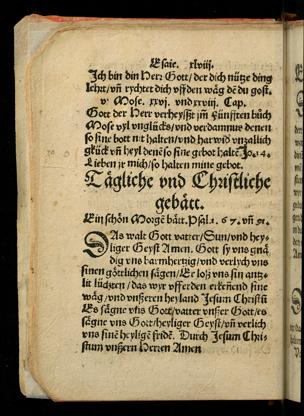 Esaie. xlviij.
Ich bin din Herr Gott/ der dich nütze ding
lehrt/ vñ rychtet dich vff den wäg dē du gost.
v Mose. xxvj. vnd xxviij. Cap.
Gott der Herr verheyßt jm Fünfften bůch
Mose vyl vnglücks/ vnd verdamnus denen
so sine bott nit halten/ vnd har wid vnzallich
glück vñ heyl denē so sine gebot haltē Jo. 14.
Lieben jr mich/ so halten mine gebot.
Tägliche vnd Christliche
gebätt.
Ein schön Morgē bätt. Psal. 1. 67. vñ 91.
DAs walt Gott vatter/ Sun/ vnd hey-
liger Geyst Amen. Gott sy vns gnä
dig vns barmhertzig/ vnd verlych vns
sinen göttlichen sägen/ Er loß vns sin antz-
lit lüchten/ das wyr vff erden erkēnend sine
wäg/ vnd vnßeren heyland Jesum Christū
Es sägne vns Gott/ vatter vnßer Gott/ es
sägne vns Gott/ heyliger Geyst/ vñ verlich
vns sinē heyligē fridē. Durch Jesum Chri-
stum vnßern Herren Amen